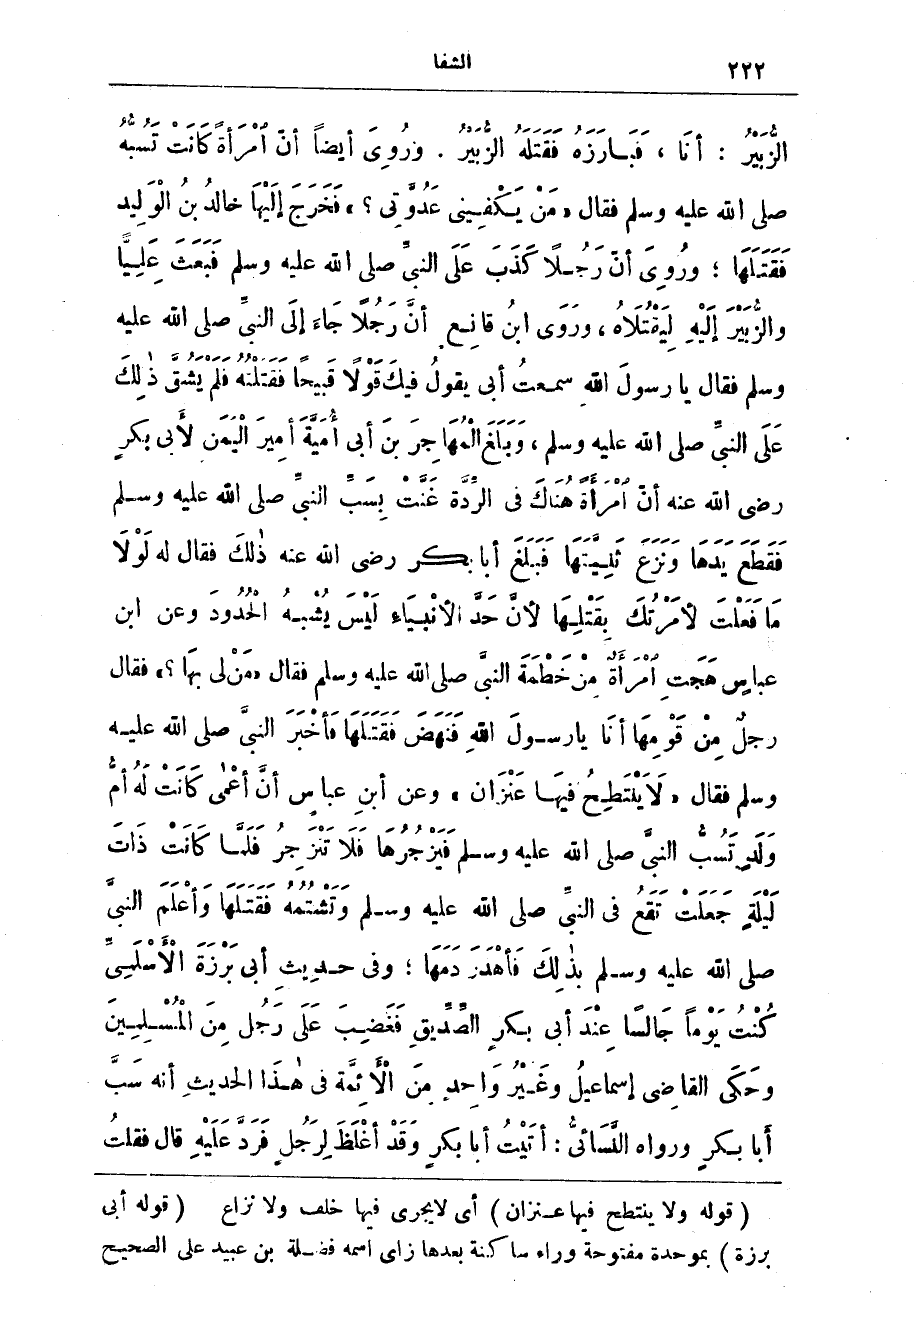 ٢٢٢ الشفا
الزُّبَيْرُ : أنَا ، فَبَارَزَهُ فَقَتَلَهُ الزُّبَيْرُ . وَرُوِىَ أيضاً أنّ آمْرَأَةً كَانَتْ تَسُبُّهُ
صلى الله عليه وسلم فقال « مَنْ يَكْفِينِى عَدُوَّتِى ؟ » فَخَرَجَ إلَيْهَا خالدُ بنُ الْوَلِيد
فَقَتَلَهَا ؛ ورُوِىَ أنّ رَجُلاً كَذَبَ عَلَى النبىِّ صلى الله عليه وسلم فَبَعَثَ عَلِيًّا
والزُّبَيْرَ إلَيْهِ لِيَقْتُلَاهُ ، ورَوَى ابنُ قانِعٍ أنَّ رَجُلًا جَاءَ إلَى النبىِّ صلى الله عليه
وسلم فقال يا رسولَ اللهِ سمعتُ أبى يقولُ فيكَ قَوْلًا قَبِيحًا فَقَتَلْتُهُ فَلَمْ يَشُقَّ ذٰلِكَ
عَلَى النبىِّ صلى الله عليه وسلم ، وَبَلَغَ الْمُهَاجِرَ بنَ أبى أُمَيَّةَ أمِيرَ الْيَمَن لأَبى بكرٍ
رضى الله عنه أنّ آمْرَأَةً هُنَاكَ فى الرِّدَّةِ غَنَّتْ بِسَبِّ النبىِّ صلى الله عليه وسلم
فَقَطَعَ يَدَهَا وَنَزَعَ ثَنِيَّتَهَا فَبَلَغَ أبا بكر رضى الله عنه ذٰلكَ فقال له لَوْلَا
مَا فَعَلْتَ لأمَرْتُكَ بِقَتْلِهَا لأنَّ حَدَّ الأنْبِيَاءِ لَيْسَ يُشْبِهُ الْحُدُودَ وعن ابن
عباسٍ هَجَتِ آمْرَأَةٌ مِنْ خَطْمَةَ النبىَّ صلى الله عليه وسلم فقال «مَنْ لى بِهَا ؟» فقال
رجلٌ مِنْ قَوْمِهَا أنَا يارسولَ اللهِ فَنَهَضَ فَقَتَلَهَا فَأخْبَرَ النبىَّ صلى الله عليه
وسلم فقال « لَا يَنْتَطِحُ فِيهَا عَنْزَان » وعن أبنِ عباسٍ أنَّ أعْمٰى كَانَتْ لَهُ أُمُّ
وَلَدٍ تَسُبُّ النبىَّ صلى الله عليه وسلم فَيَزْجُرُهَا فَلَا تَنْزَجِرُ فَلَمَّا كَانَتْ ذَاتَ
لَيْلَةٍ جَعَلَتْ تَقَعُ فى النبىِّ صلى الله عليه وسلم وَتَشْتُمُهُ فَقَتَلَهَا وَأعْلَمَ النبىَّ
صلى الله عليه وسلم بذٰلِكَ فَأهْدَرَ دَمَهَا ؛ وفى حديثِ أبى بَرْزَةَ الأَسْلَمِىِّ
كُنْتُ يَوْماً جَالسًا عِنْدَ أبى بكرٍ الصِّدِّيقِ فَغَضِبَ عَلَى رَجُل مِنَ الْمُسْلِمِينَ
وحَكَى القاضِى إسماعيلُ وغَيْرُ وَاحِدٍ مِنَ الْأَئِمَّةِ فى هٰذَا الحديثِ أنه سَبَّ
أبا بكرٍ ورواه النَّسَائىُّ : أتَيْتُ أبا بكرٍ وَقَدْ أغْلَظَ لِرَجُلٍ فَرَدَّ عَلَيْهِ قال فقلتُ
( قوله ولا ينتطح فيها عنزان ) أى لايجرى فيها خلف ولا نزاع ( قوله أبى
برزة ) بموحدة مفتوحة وراء ساكنة بعدها زاى اسمه فضلة بن عبيد على الصحيح